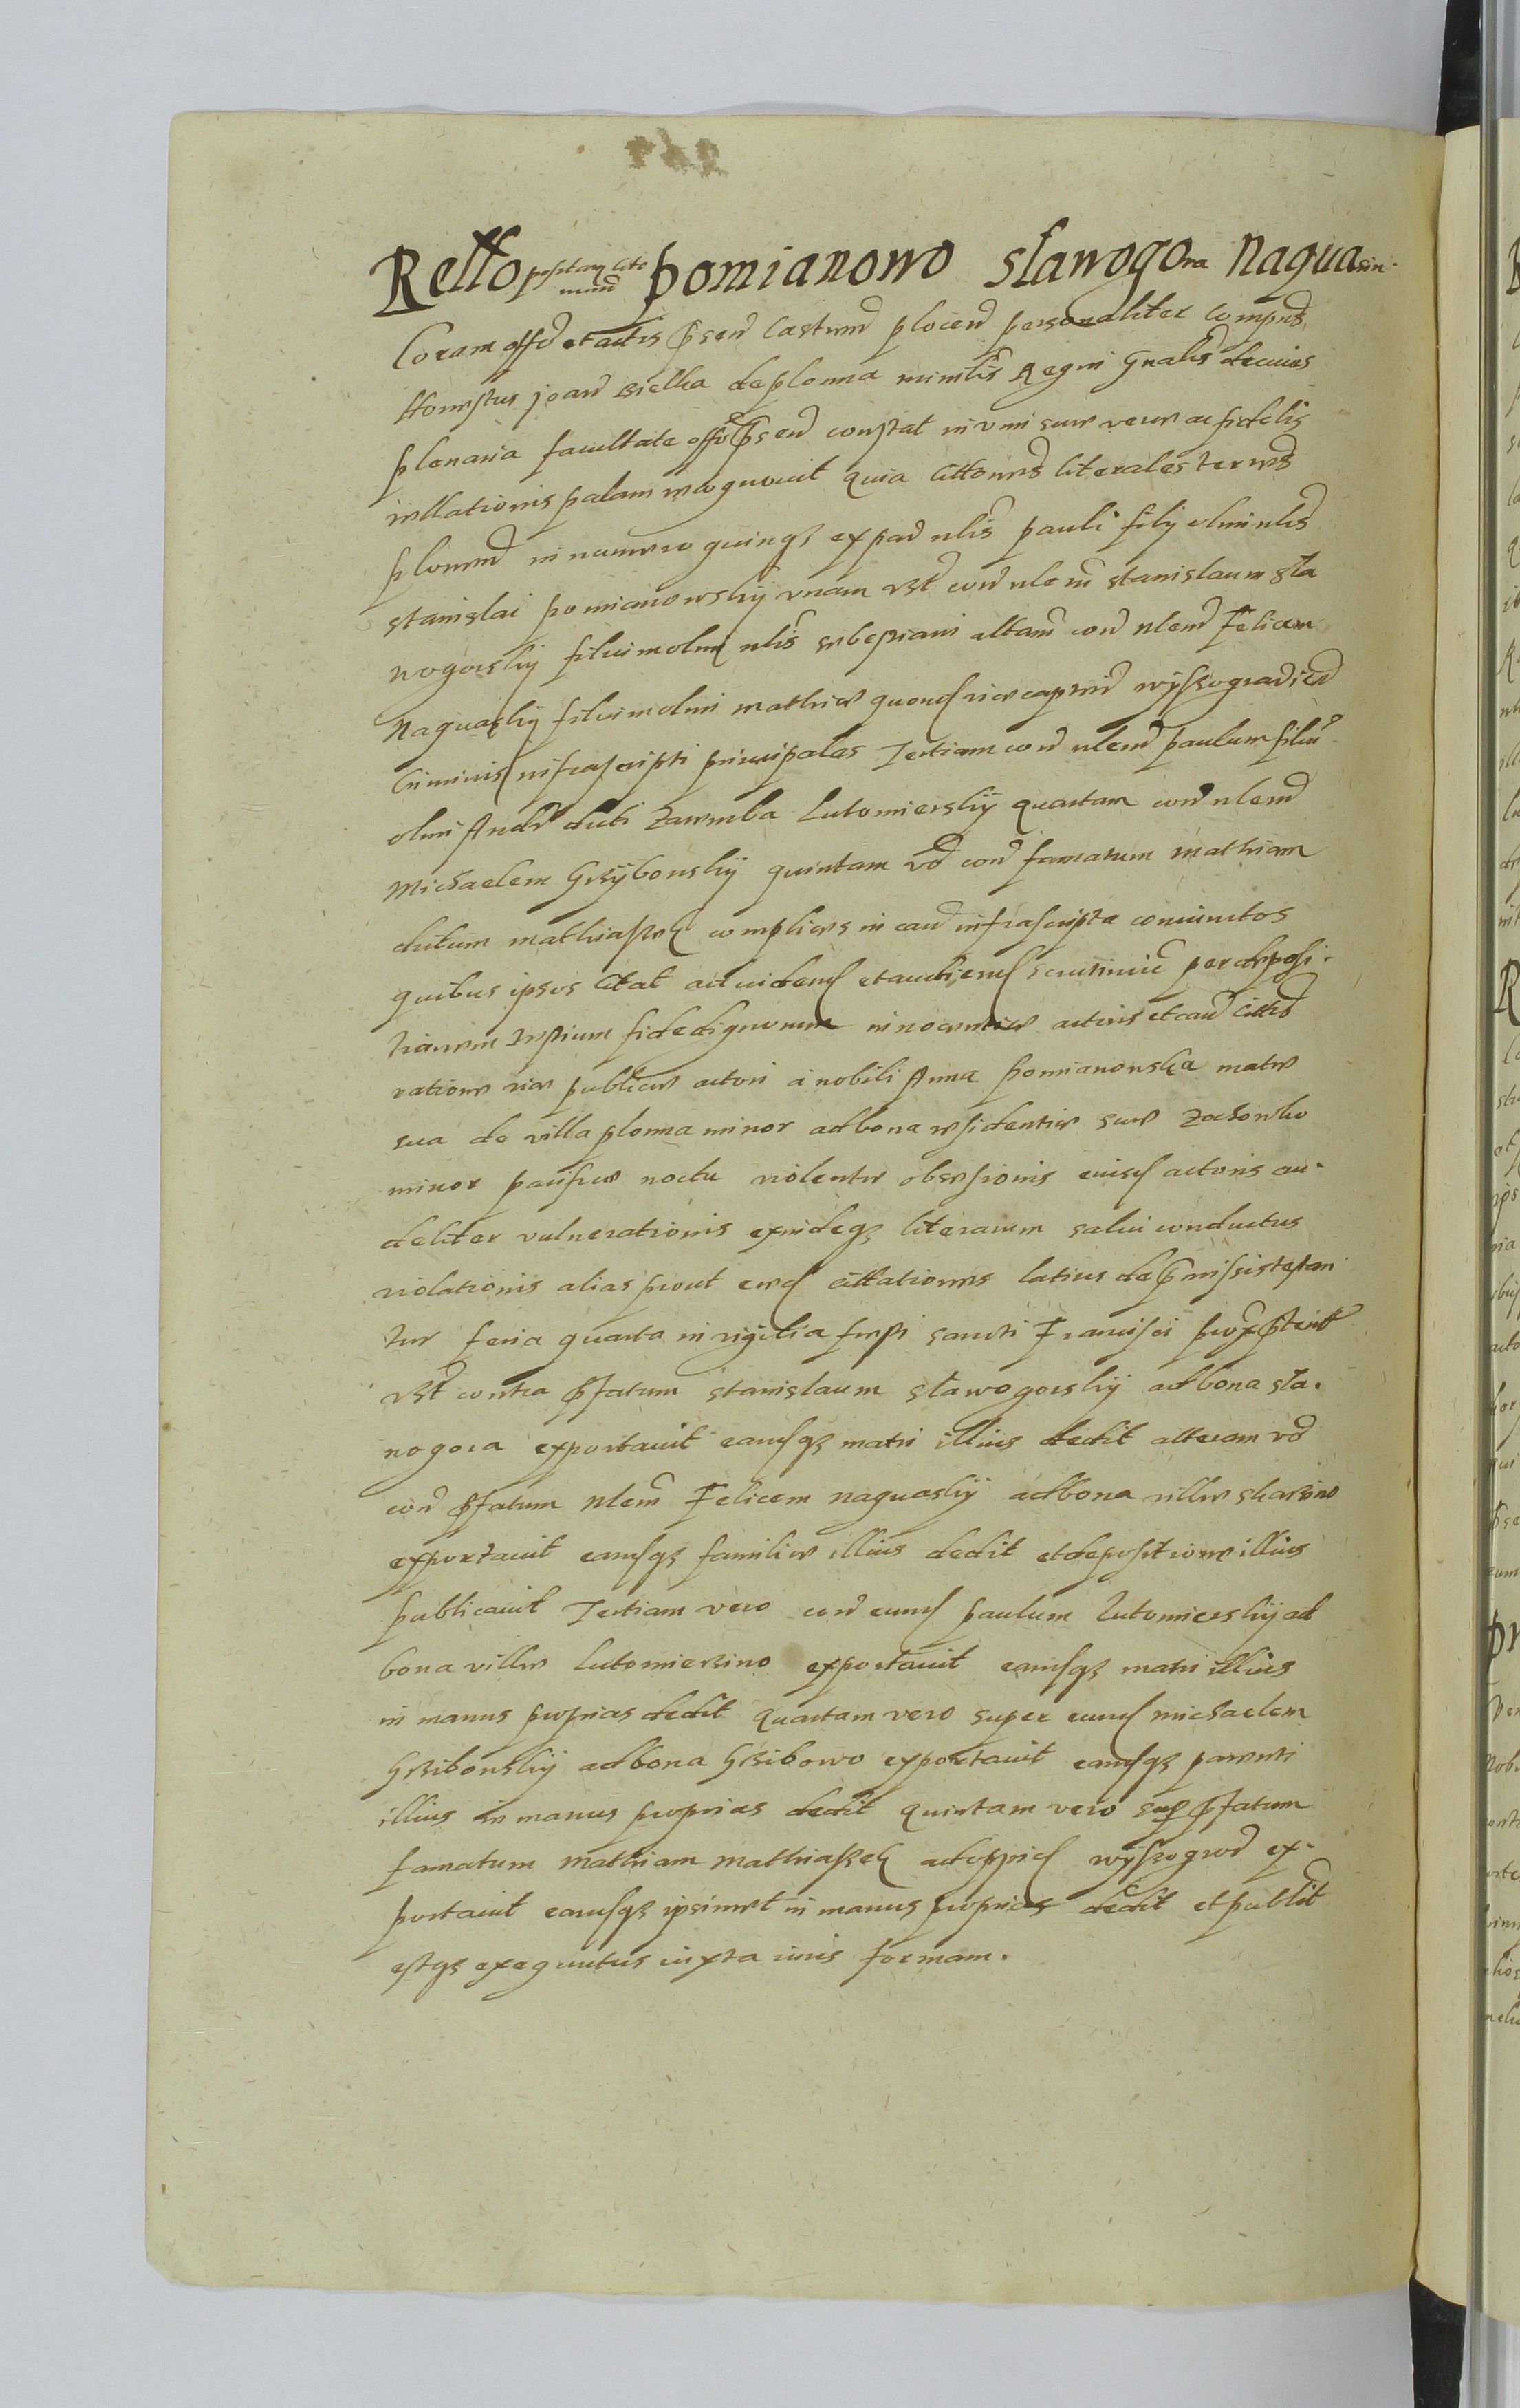 Retto positarum cito Pomianowo Slawogora Naguasin.
num
Coram offo et actis psen Castren plocen personaliter compns
Honestus Joan Bielka de plonna minilis Regni Gnalis de cuius
plenaria facultate offo psen constat in vim sue vere ac fidelis
rellationis palam recognouit quia cittones literales terres
plonen in numero quinqz ex par nlis pauli filij olim nlis
stanislai pomianowskij vnam vzt con nlem stanislaum sla
wogorskij filium olim nlis sebestiani altam con nlem Felicem
naguaskij filium olim mathie quond vicecapnei wyssogradien
criminis infrascripti principales Tertiam con nlem paulum filiu
olim Andr dicti Zaremba Lutomierskij quartam con nlem
Michaelem Grzybowskij quintam vo con famatum mathiam
dictum mathiaszek complices in cau infrascripta coniunctos
quibus ipsos citat ad uidend et audiend scrutiniu per deposi.
tionem testium fidedignorum innocentie actoris et cau cittis
ratione vie publice actori a nobili Anna pomianowska matre
sua de villa plonna minor ad bona residentie sue Zochowko
minor pacifice noctu violenter obsessionis eiusd actoris cru.
deliter vulnerationis exindeqz literarum salui conductus
violationis alias prout eaed cittationes latius de pmissis testan
tur feria quarta in vigilia festi sancti Francisci prox pterit
vzt contra pfatum stanislaum slawogorskij ad bona sla.
wogora exportauit eamdqz matri illius dedit alteram vo
con pfatum nlem Felicem naguaskij ad bona ville skarzino
exportauit eamdqz familie illius dedit et depositione illius
publicauit Tertiam vero con eund paulum Lutomierskij ad
bona ville Lutomierzino exportauit eamdqz matri illius
in manus proprias dedit quartam vero super eund michaelem
Grzibowskij ad bona Grzibowo exportauit eamdqz parenti
illius in manus proprias dedit quintam vero sup pfatum
famatum mathiam mathiaszek ad oppid wyssogrod ex.
portauit eamdqz ipsimet in manus proprias dedit et publit
estqz exequutus iuxta iuris formam.